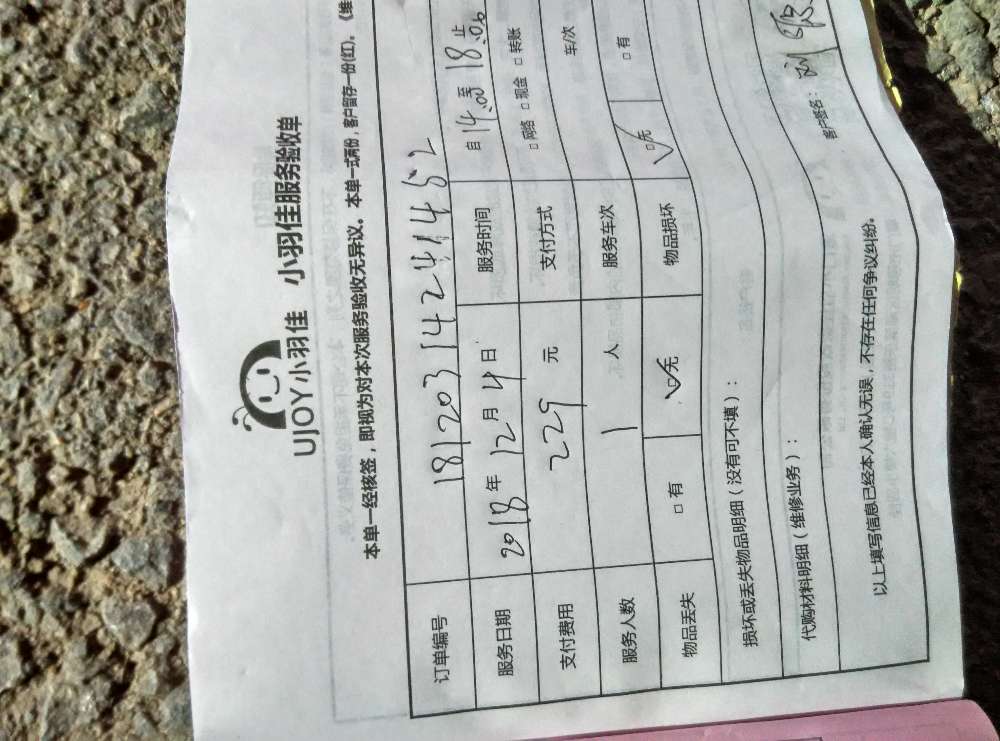 UJOY小羽佳 小羽佳服务验收单
本单一经核签，即视为对本次服务验收无异议。本单一式两份，客户留存一份(红)。《维
订单编号 181203142414152
服务日期 2018年12月4日 服务时间 自14:00至18:06止
支付费用 229元 支付方式 □网络 □现金 □转账
服务人数 1人 服务车次 车/次
物品丢失 □有 ☑无 物品损坏 ☑无 □有
损坏或丢失物品明细（没有可不填）：
代购材料明细（维修业务）：
以上填写信息已经本人确认无误，不存在任何争议纠纷。
客户签名：刘